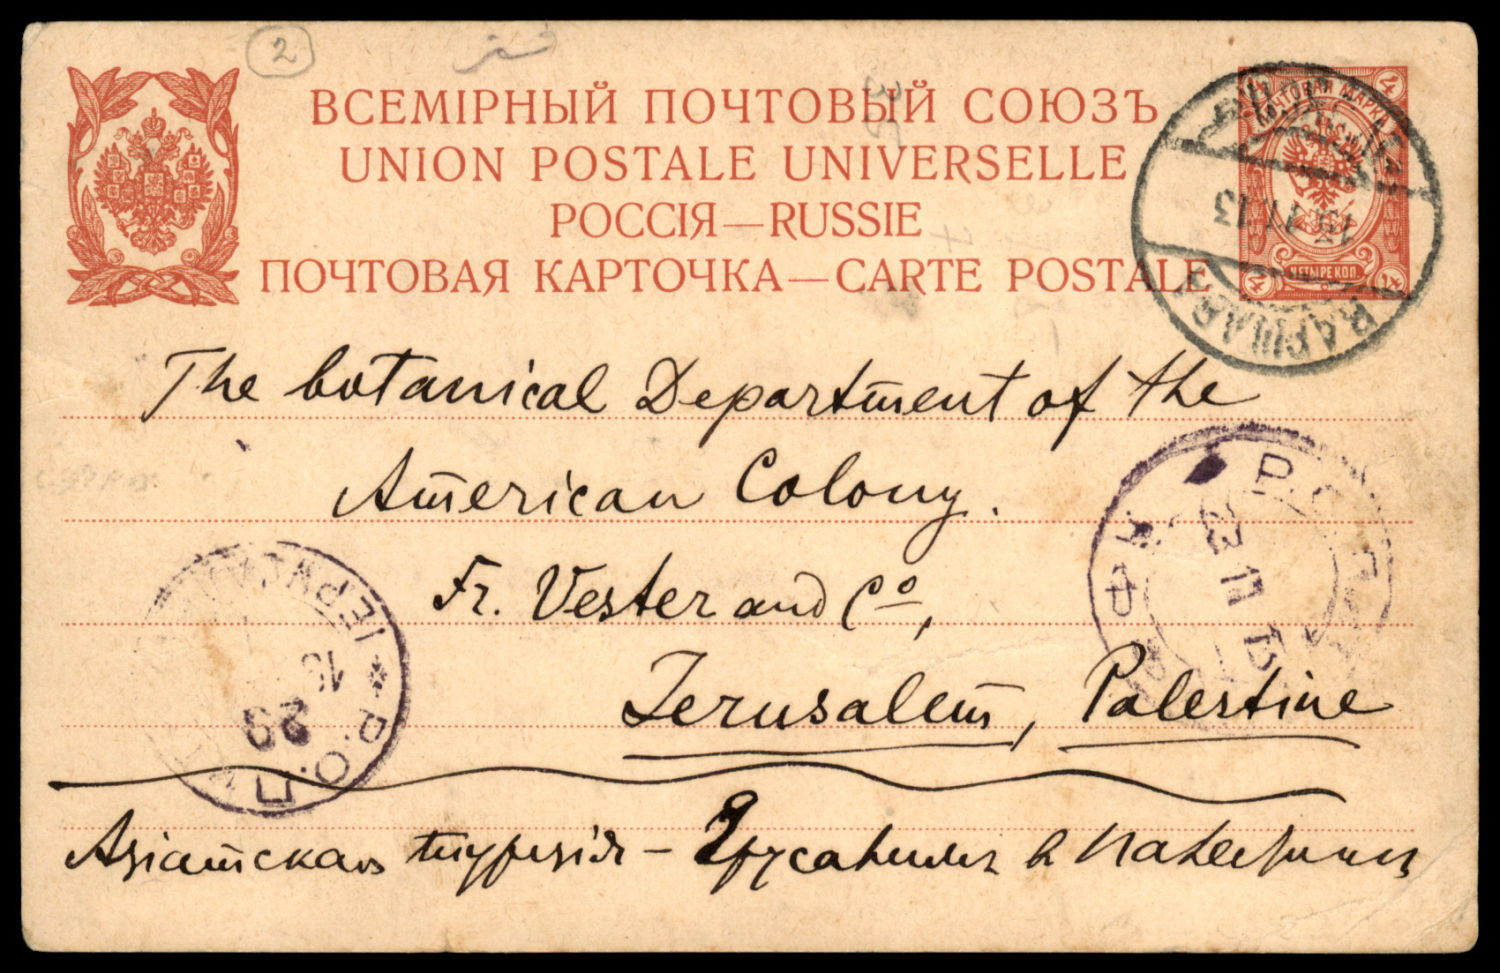 2
ВСЕМІРНЫЙ ПОЧТОВЫЙ СОЮЗЪ
UNION POSTALE UNIVERSELLE
РОССІЯ—RUSSIE
ПОЧТОВАЯ КАРТОЧКА—CARTE POSTALE
ПОЧТОВАЯ МАРКА
ЧЕТЫРЕ КОП.
4 4 4 4
ВАРШАВА
13
The botanical Department of the
American Colony.
Fr. Vester and Co,
Jerusalem, Palestine
Р.О.П.
ІЕРУСАЛ
29
Азіатская Турція — Іерусалимъ в Палестинѣ